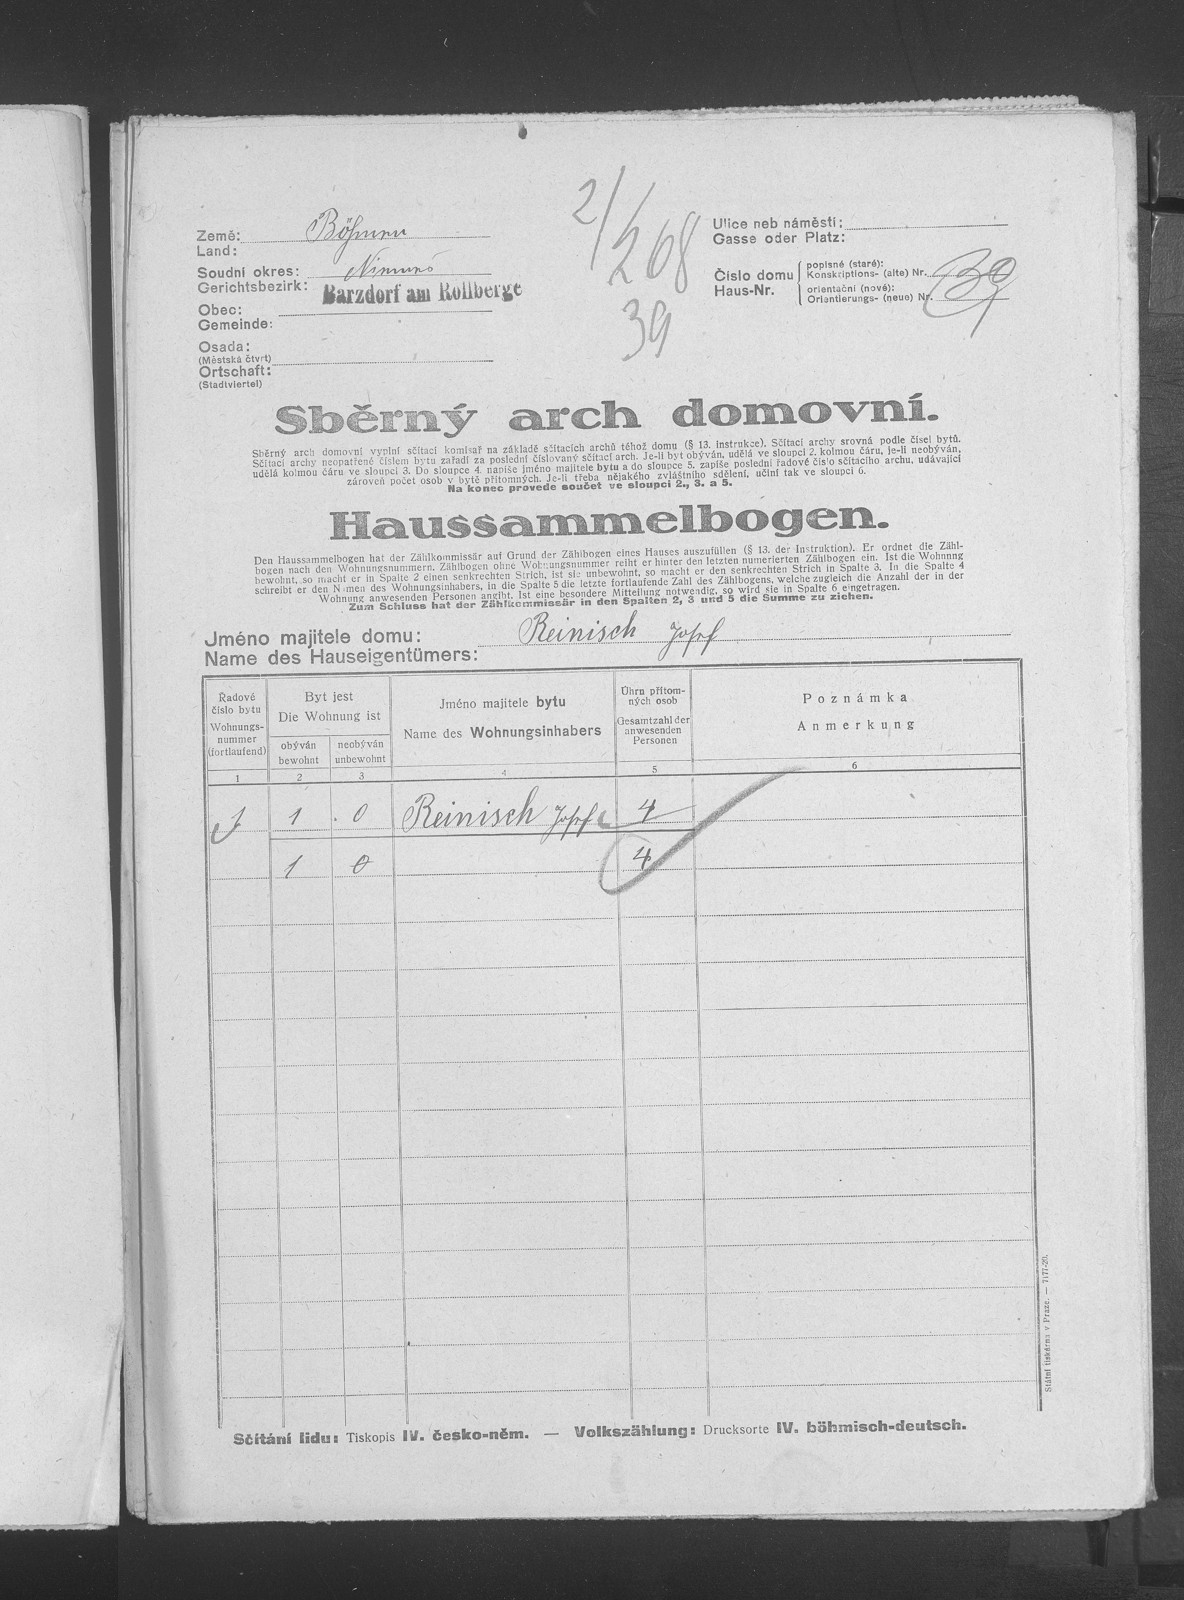 2/268
39
Země: Böhmen
Land:
Soudní okres:
Gerichtsbezirk:
Barzdorf am Rollberge
Obec:
Gemeinde:
Osada:
(Městská čtvrt)
Ortschaft:
(Stadtviertel)
Ulice neb náměstí:
Gasse oder Platz:
Číslo domu
Haus-Nr.
popisné (staré):
Konskriptions- (alte) Nr.
orientační (nové):
Orientierungs- (neue) Nr.
39
Sběrný arch domovní.
Sběrný arch domovní vyplní sčítací komisař na základě sčítacích archů téhož domu (§ 13. instrukce). Sčítací archy srovná podle čísel bytů.
Sčítací archy neopatřené číslem bytu zařadí za poslední číslovaný sčítací arch. Je-li byt obýván, udělá ve sloupci 2. kolmou čáru, je-li neobýván,
udělá kolmou čáru ve sloupci 3. Do sloupce 4. napíše jméno majitele bytu a do sloupce 5. zapíše poslední řadové číslo sčítacího archu, udávající
zároveň počet osob v bytě přítomných. Je-li třeba nějakého zvláštního sdělení, učiní tak ve sloupci 6.
Na konec provede součet ve sloupci 2., 3. a 5.
Haussammelbogen.
Den Haussammelbogen hat der Zählkommissär auf Grund der Zählbogen eines Hauses auszufüllen (§ 13. der Instruktion). Er ordnet die Zähl-
bogen nach den Wohnungsnummern. Zählbogen ohne Wohnungsnummer reiht er hinter den letzten numerierten Zählbogen ein. Ist die Wohnung
bewohnt, so macht er in Spalte 2 einen senkrechten Strich, ist sie unbewohnt, so macht er den senkrechten Strich in Spalte 3. In die Spalte 4
schreibt er den Namen des Wohnungsinhabers, in die Spalte 5 die letzte fortlaufende Zahl des Zählbogens, welche zugleich die Anzahl der in der
Wohnung anwesenden Personen angibt. Ist eine besondere Mitteilung notwendig, so wird sie in Spalte 6 eingetragen.
Zum Schluss hat der Zählkommissär in den Spalten 2, 3 und 5 die Summe zu ziehen.
Jméno majitele domu: Reinisch Josef
Name des Hauseigentümers:
Řadové
číslo bytu
Wohnungs-
nummer
(fortlaufend)
Byt jest
Die Wohnung ist
obýván
bewohnt
neobýván
unbewohnt
Jméno majitele bytu
Name des Wohnungsinhabers
Úhrn přítom-
ných osob
Gesamtzahl der
anwesenden
Personen
Poznámka
Anmerkung
1 2 3 4 5 6
1 1 0 Reinisch Josef 4
1 0 4
Státní tiskárna v Praze. — 7177-20.
Sčítání lidu: Tiskopis IV. česko-něm. — Volkszählung: Drucksorte IV. böhmisch-deutsch.